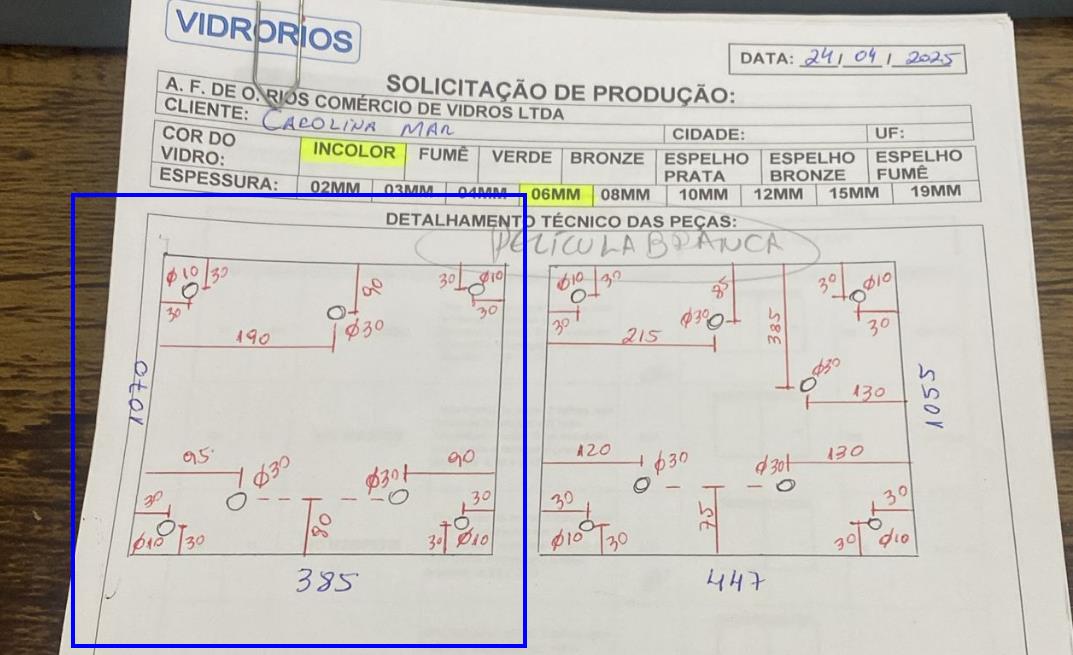 VIDRORIOS
DATA: 24/04/2025
SOLICITAÇÃO DE PRODUÇÃO:
A. F. DE O. RIOS COMÉRCIO DE VIDROS LTDA
CLIENTE: CAROLINA MAR CIDADE: UF:
COR DO VIDRO: INCOLOR FUMÊ VERDE BRONZE ESPELHO PRATA ESPELHO BRONZE ESPELHO FUMÊ
ESPESSURA: 02MM 03MM 04MM 06MM 08MM 10MM 12MM 15MM 19MM
DETALHAMENTO TÉCNICO DAS PEÇAS:
PELÍCULA BRANCA
φ10 30 90 30 φ10
30 φ30 30
190
1070
95 φ30 φ30 90
30 30
φ10 30 80 30 φ10
385
φ10 30 85 385 30 φ10
30 φ30 30
215
φ30
130
1055
120 φ30 φ30 130
30 30
φ10 30 75 30 φ10
447